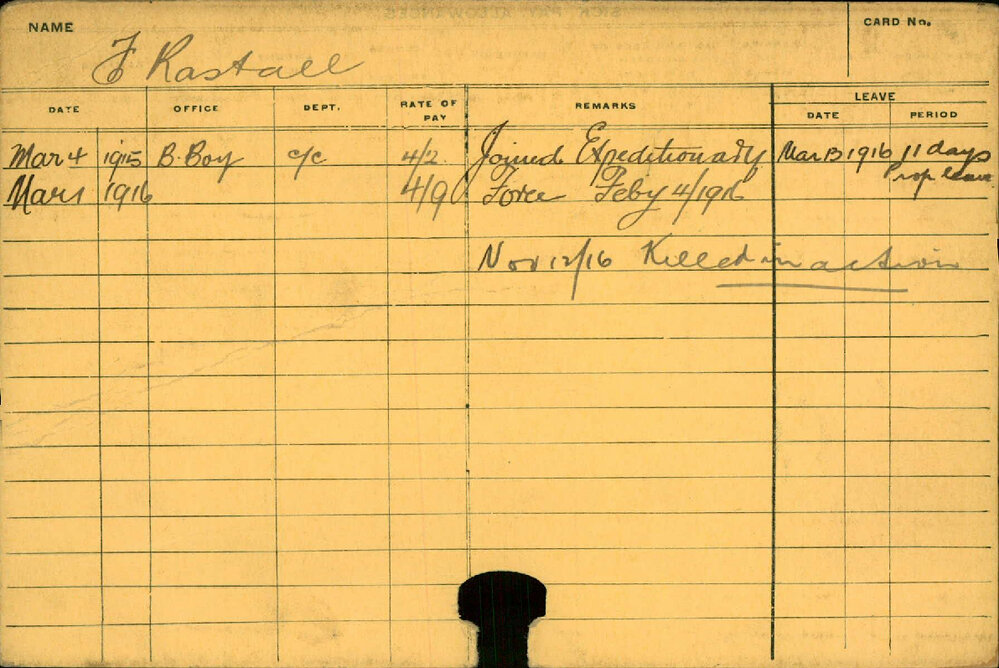 NAME
CARD No.
F Rastall
DATE OFFICE DEPT. RATE OF PAY REMARKS LEAVE
DATE PERIOD
Mar 4 1915 B. Boy c/c 4/2 Joined Expeditionary Mar 13 1916 11 days
Mar 1 1916 4/9 Force Feby 4/1916 Prop leave
Nov 12/16 Killed in action